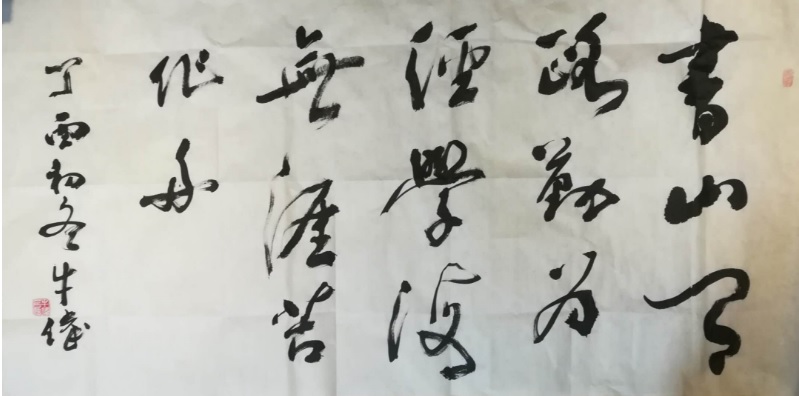 書山有
路勤為
徑學海
無涯苦
作舟
丁酉初冬牛